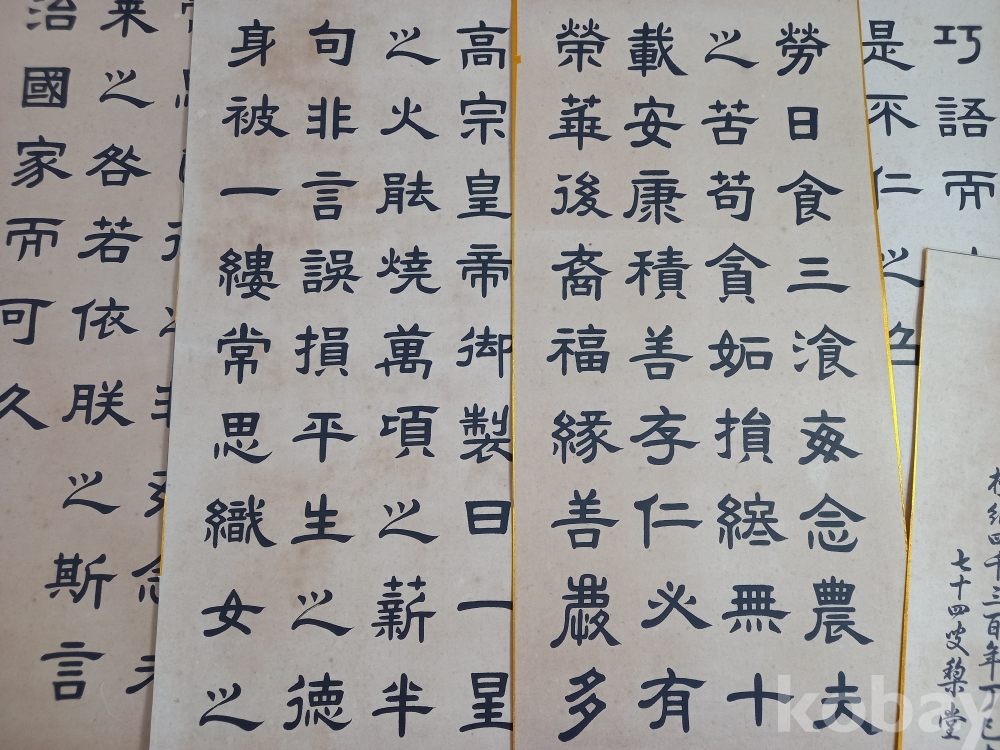 巧語而
是不仁之色
紀四千三百年丁巳
七十四叟梨堂
勞日食三飡每念農夫
之苦苟貪妬損終無十
載安康積善存仁必有
榮華後裔福緣善慶多
高宗皇帝御製曰一星
之火能燒萬項之薪半
句非言誤損平生之德
身被一縷常思織女之
來之咎若依朕之斯言
治國家而可久
kobay